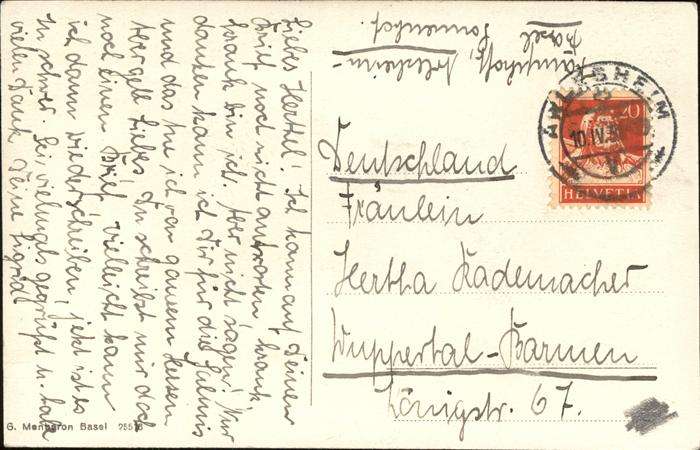 Liebes Herthel! Ich kann auf Deinen
Brief noch nicht antworten, krank
krank bin ich. nicht sagen! Nur
danken kann ich Dir für die
und das tue ich von ganzem Herzen
liebes Du schreibst mir doch
noch einen Brief vielleicht kann
ich dann wiederschreiben, jetzt ist es
zu schwer. Sei vielmals gegrüßt u. habe
vielen Dank Deine Sigrid
Arlesheim-
Basel
Sonnenhof.
ARLESHEIM
10.IV.
20
HELVETIA
Deutschland
Fräulein
Hertha Rademacher
Wuppertal-Barmen
Königstr. 67.
G. Basel